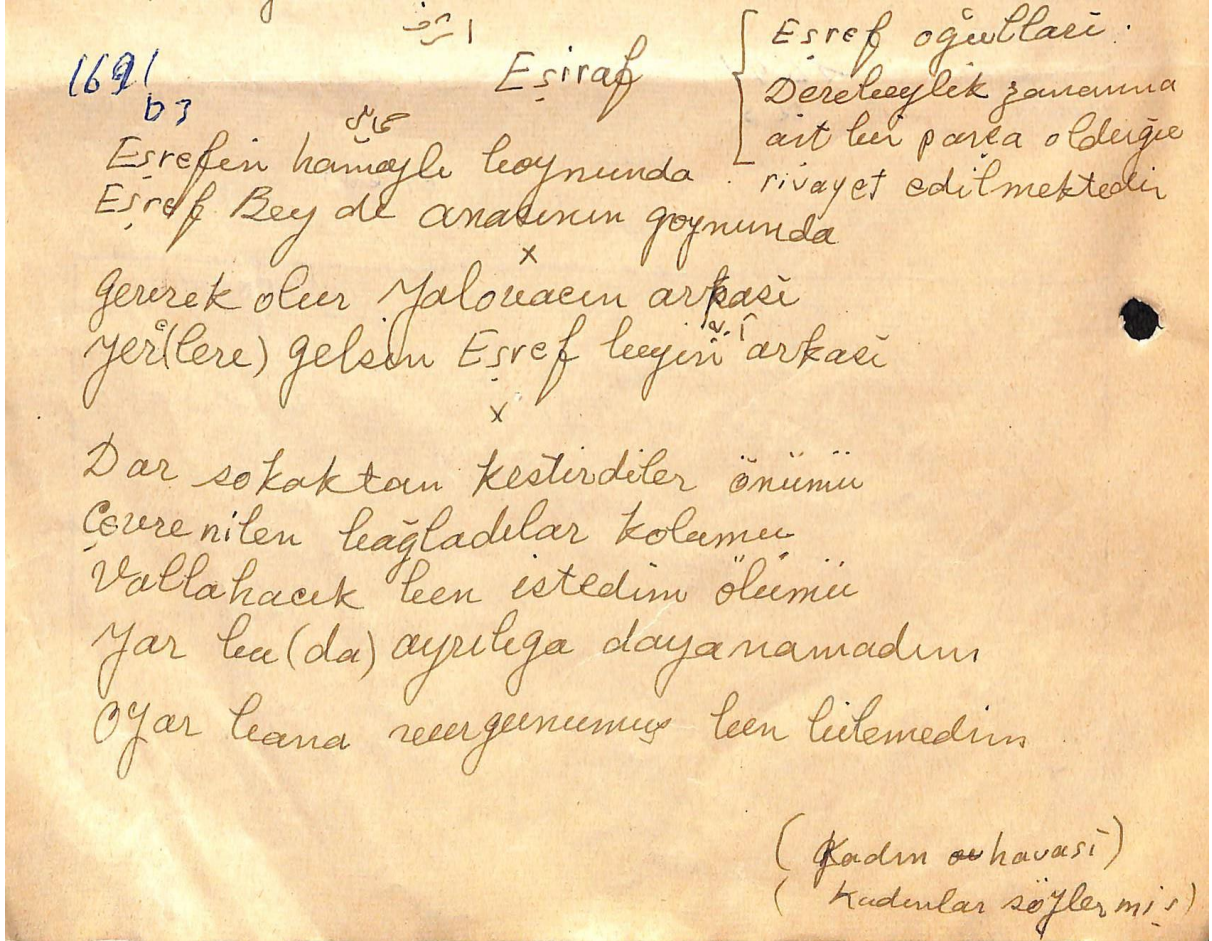 اشرف
Eşiraf
1691
b3
Eşref oğulları
Derebeylik zamanına
ait bir parça olduğu
rivayet edilmektedir
حمایل
Eşrefin hamaylı boynunda
Eşref Bey de anasının goynunda
x
Gevrek olur Yalovacın arpası
Yer(lere) gelsin Eşref beyin arkası
x
Dar sokaktan kestirdiler önümü
Çevre nilen bağladılar kolumu
Vallahacık ben istedim ölümü
Yar bu(da) ayrılıga dayanamadım
O Yar bana vurgunumuş ben bilemedim
(Kadın havası)
(Kadınlar söylermiş)